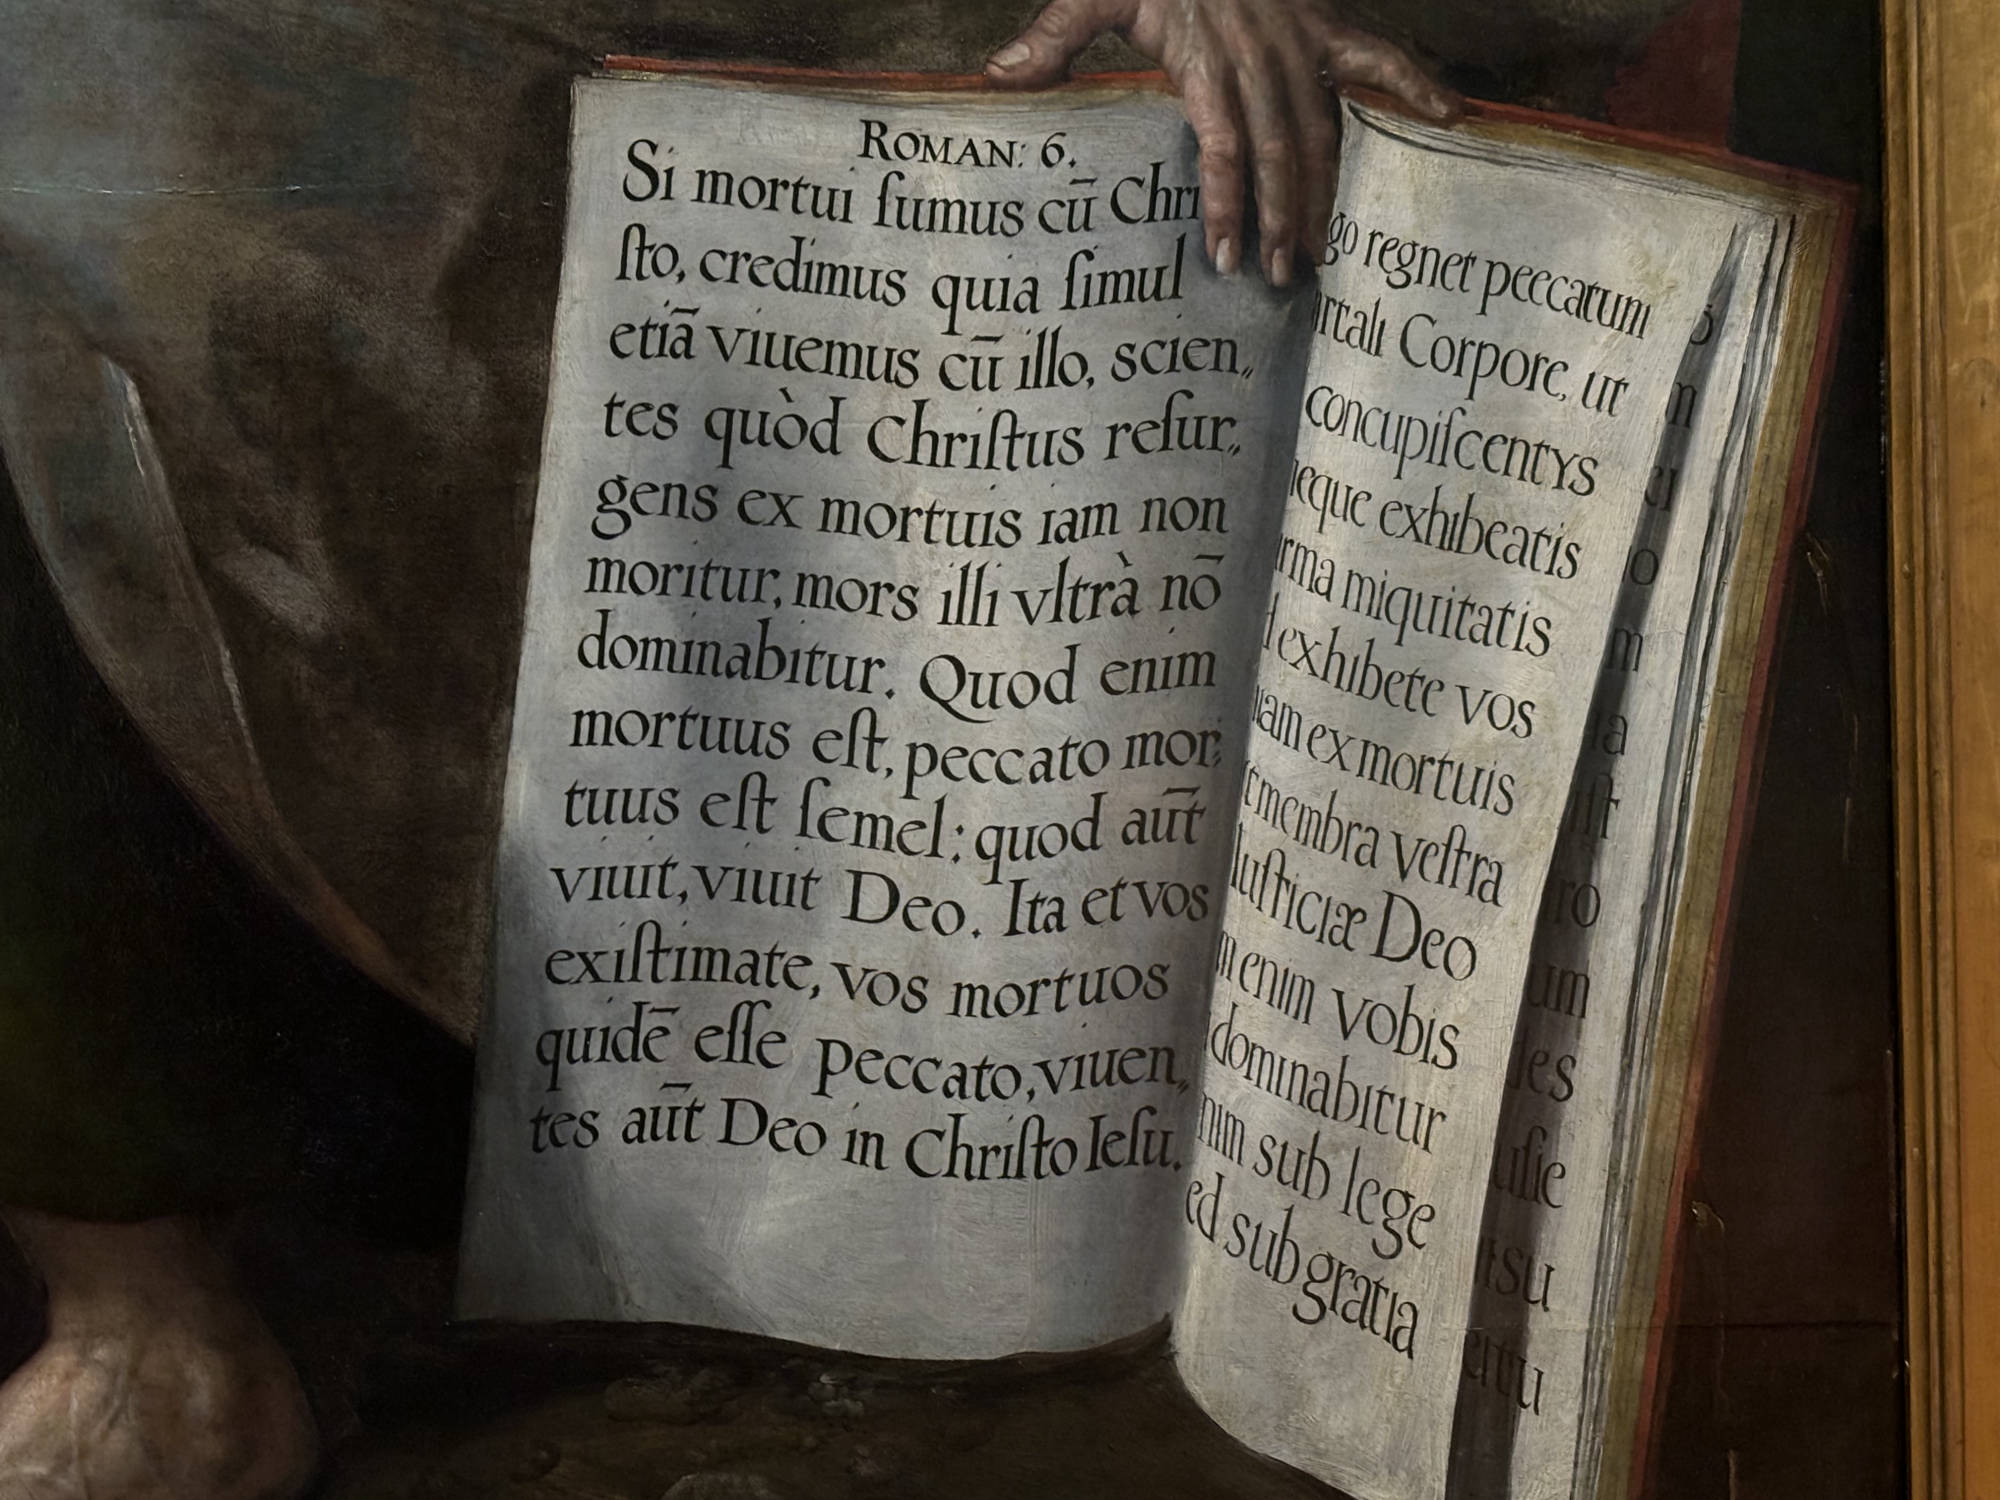 ROMAN: 6.
Si mortui ſumus cū Chri
ſto, credimus quia ſimul
etiā viuemus cū illo, scien„
tes quòd Chriſtus reſur„
gens ex mortuis iam non
moritur, mors illi vltrà nō
dominabitur. Quod enim
mortuus eſt, peccato mor„
tuus eſt ſemel: quod aūt
viuit, viuit Deo. Ita et vos
exiſtimate, vos mortuos
quidē eſſe peccato, viuen„
tes aūt Deo in Chriſto Ieſu.
go regnet peccatum
rtali Corpore, ut
concupiſcentys
eque exhibeatis
rma iniquitatis
d exhibete vos
uam ex mortuis
t membra veſtra
Iuſticiæ Deo
m enim vobis
dominabitur
nim sub lege
ed sub gratia
o
m
ci
o
m
ia
iſt
ro
um
les
uſic
rsu
ertu